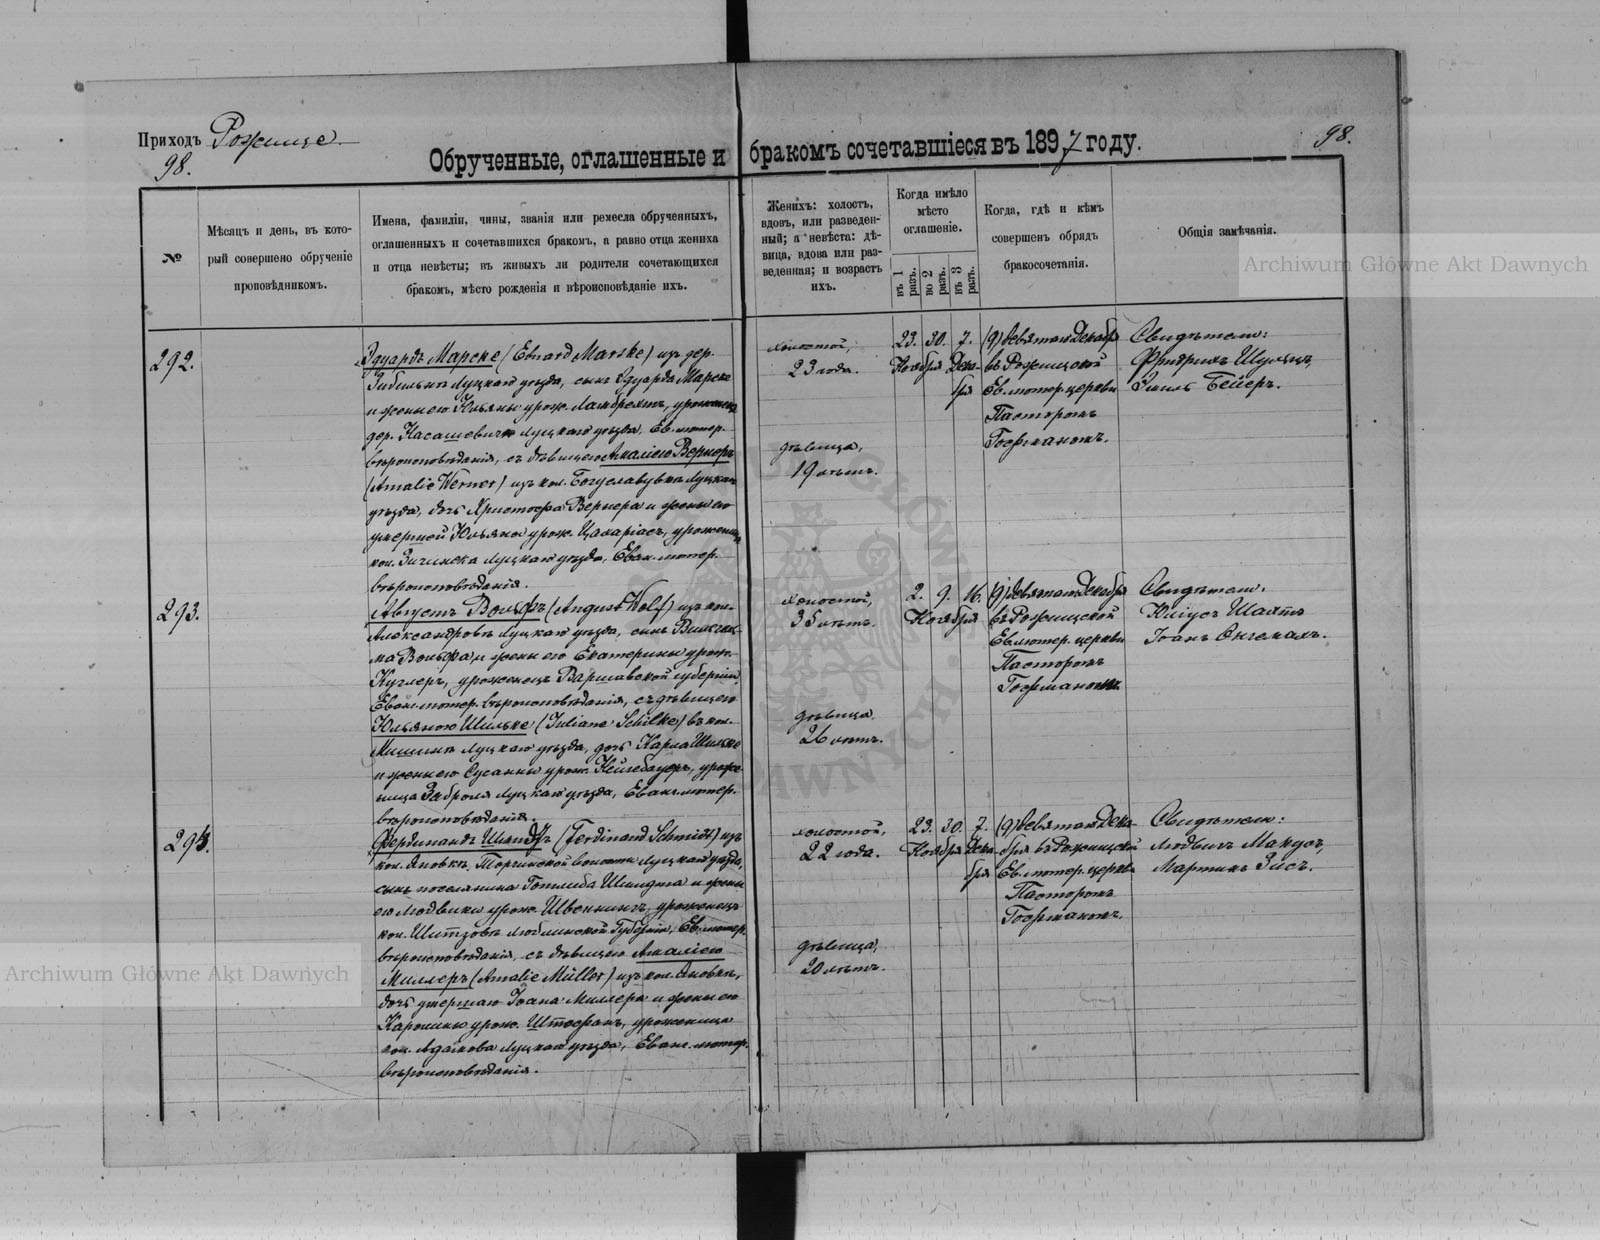 Приходъ Рожище
98.
98.
Обрученные, оглашенные и бракомъ сочетавшіеся въ 1897 году.
№
Мѣсяцъ и день, въ кото-
рый совершено обрученіе
проповѣдникомъ.
Имена, фамиліи, чины, званія или ремесла обрученныхъ,
оглашенныхъ и сочетавшихся бракомъ, а равно отца жениха
и отца невѣсты; въ живыхъ ли родители сочетающихся
бракомъ, мѣсто рожденія и вѣроисповѣданіе ихъ.
Женихъ: холостъ,
вдовъ, или разведен-
ный; а невѣста: дѣ-
вица, вдова или раз-
веденная; и возрастъ
ихъ.
Когда имѣло
мѣсто
оглашеніе.
въ 1 разъ.
во 2 разъ.
въ 3 разъ.
Когда, гдѣ и кѣмъ
совершенъ обрядъ
бракосочетанія.
Общія замѣчанія.
Archiwum Główne Akt Dawnych
292.
Эдуардъ Марске (Eduard Marske) изъ дер.
Луцкаго уѣзда, сынъ Эдуарда Марске
и жены его Юльяны урож. Ламбрехтъ, уроженецъ
дер. Луцкаго уѣзда, Ев. лютер.
вѣроисповѣданія, съ дѣвицею Амаліею Вернеръ
(Amalie Werner) изъ кол. Богуславувка Луцкаго
уѣзда, дочь Христофа Вернера и жены его
умершей Юльяны урож. Цахаріасъ, уроженица
кол. Луцкаго уѣзда, Еван. лютер.
вѣроисповѣданія.
холостой,
23 года.
дѣвица,
19 лѣтъ.
23. 30. 7.
Ноября Дека-
бря
(9) девятаго Декабря
въ Рожищской
Ев. лютер. церкви
Пасторомъ
Гофманомъ.
Свидѣтели:
Фридрихъ Шульцъ,
Эмиль Бейеръ.
293.
Августъ Вольфъ (August Wolf) изъ кол.
Александровка Луцкаго уѣзда, сынъ Вильгель-
ма Вольфа, и жены его Екатерины урож.
Куглеръ, уроженецъ Варшавской губерніи,
Еван. лютер. вѣроисповѣданія, съ дѣвицею
Юльяною Шильке (Juliane Schilke) въ кол.
Луцкаго уѣзда, дочь Карла Шильке
и жены его Сусанны урож. уроже-
ница Заброля Луцкаго уѣзда, Еван. лютер.
вѣроисповѣданія.
холостой,
35 лѣтъ.
дѣвица,
26 лѣтъ.
2. 9. 16.
Ноября
(9) девятаго Декабря
въ Рожищской
Ев. лютер. церкви
Пасторомъ
Гофманомъ.
Свидѣтели:
Юліусъ
Іоанъ
294.
Фердинандъ Шмидтъ (Ferdinand Schmidt) изъ
кол. Яновка, Торчинской волости Луцкаго уѣзда,
сынъ поселянина Готлиба Шмидта и жены
его Людвики урож. уроженецъ
кол. Люблинской Губерніи, Ев. лютер.
вѣроисповѣданія, съ дѣвицею Амаліею
Миллеръ (Amalie Müller) изъ кол. Яновка,
дочь умершаго Іоана Миллера и жены его
Каролины урож. Штефанъ, уроженица
кол. Луцкаго уѣзда, Еван. лютер.
вѣроисповѣданія.
холостой,
22 года.
дѣвица,
20 лѣтъ.
23. 30. 7.
Ноября Дека-
бря
(9) девятаго Дека-
бря въ Рожищской
Ев. лютер. церкви
Пасторомъ
Гофманомъ.
Свидѣтели:
Людвигъ
Мартинъ
Archiwum Główne Akt Dawnych